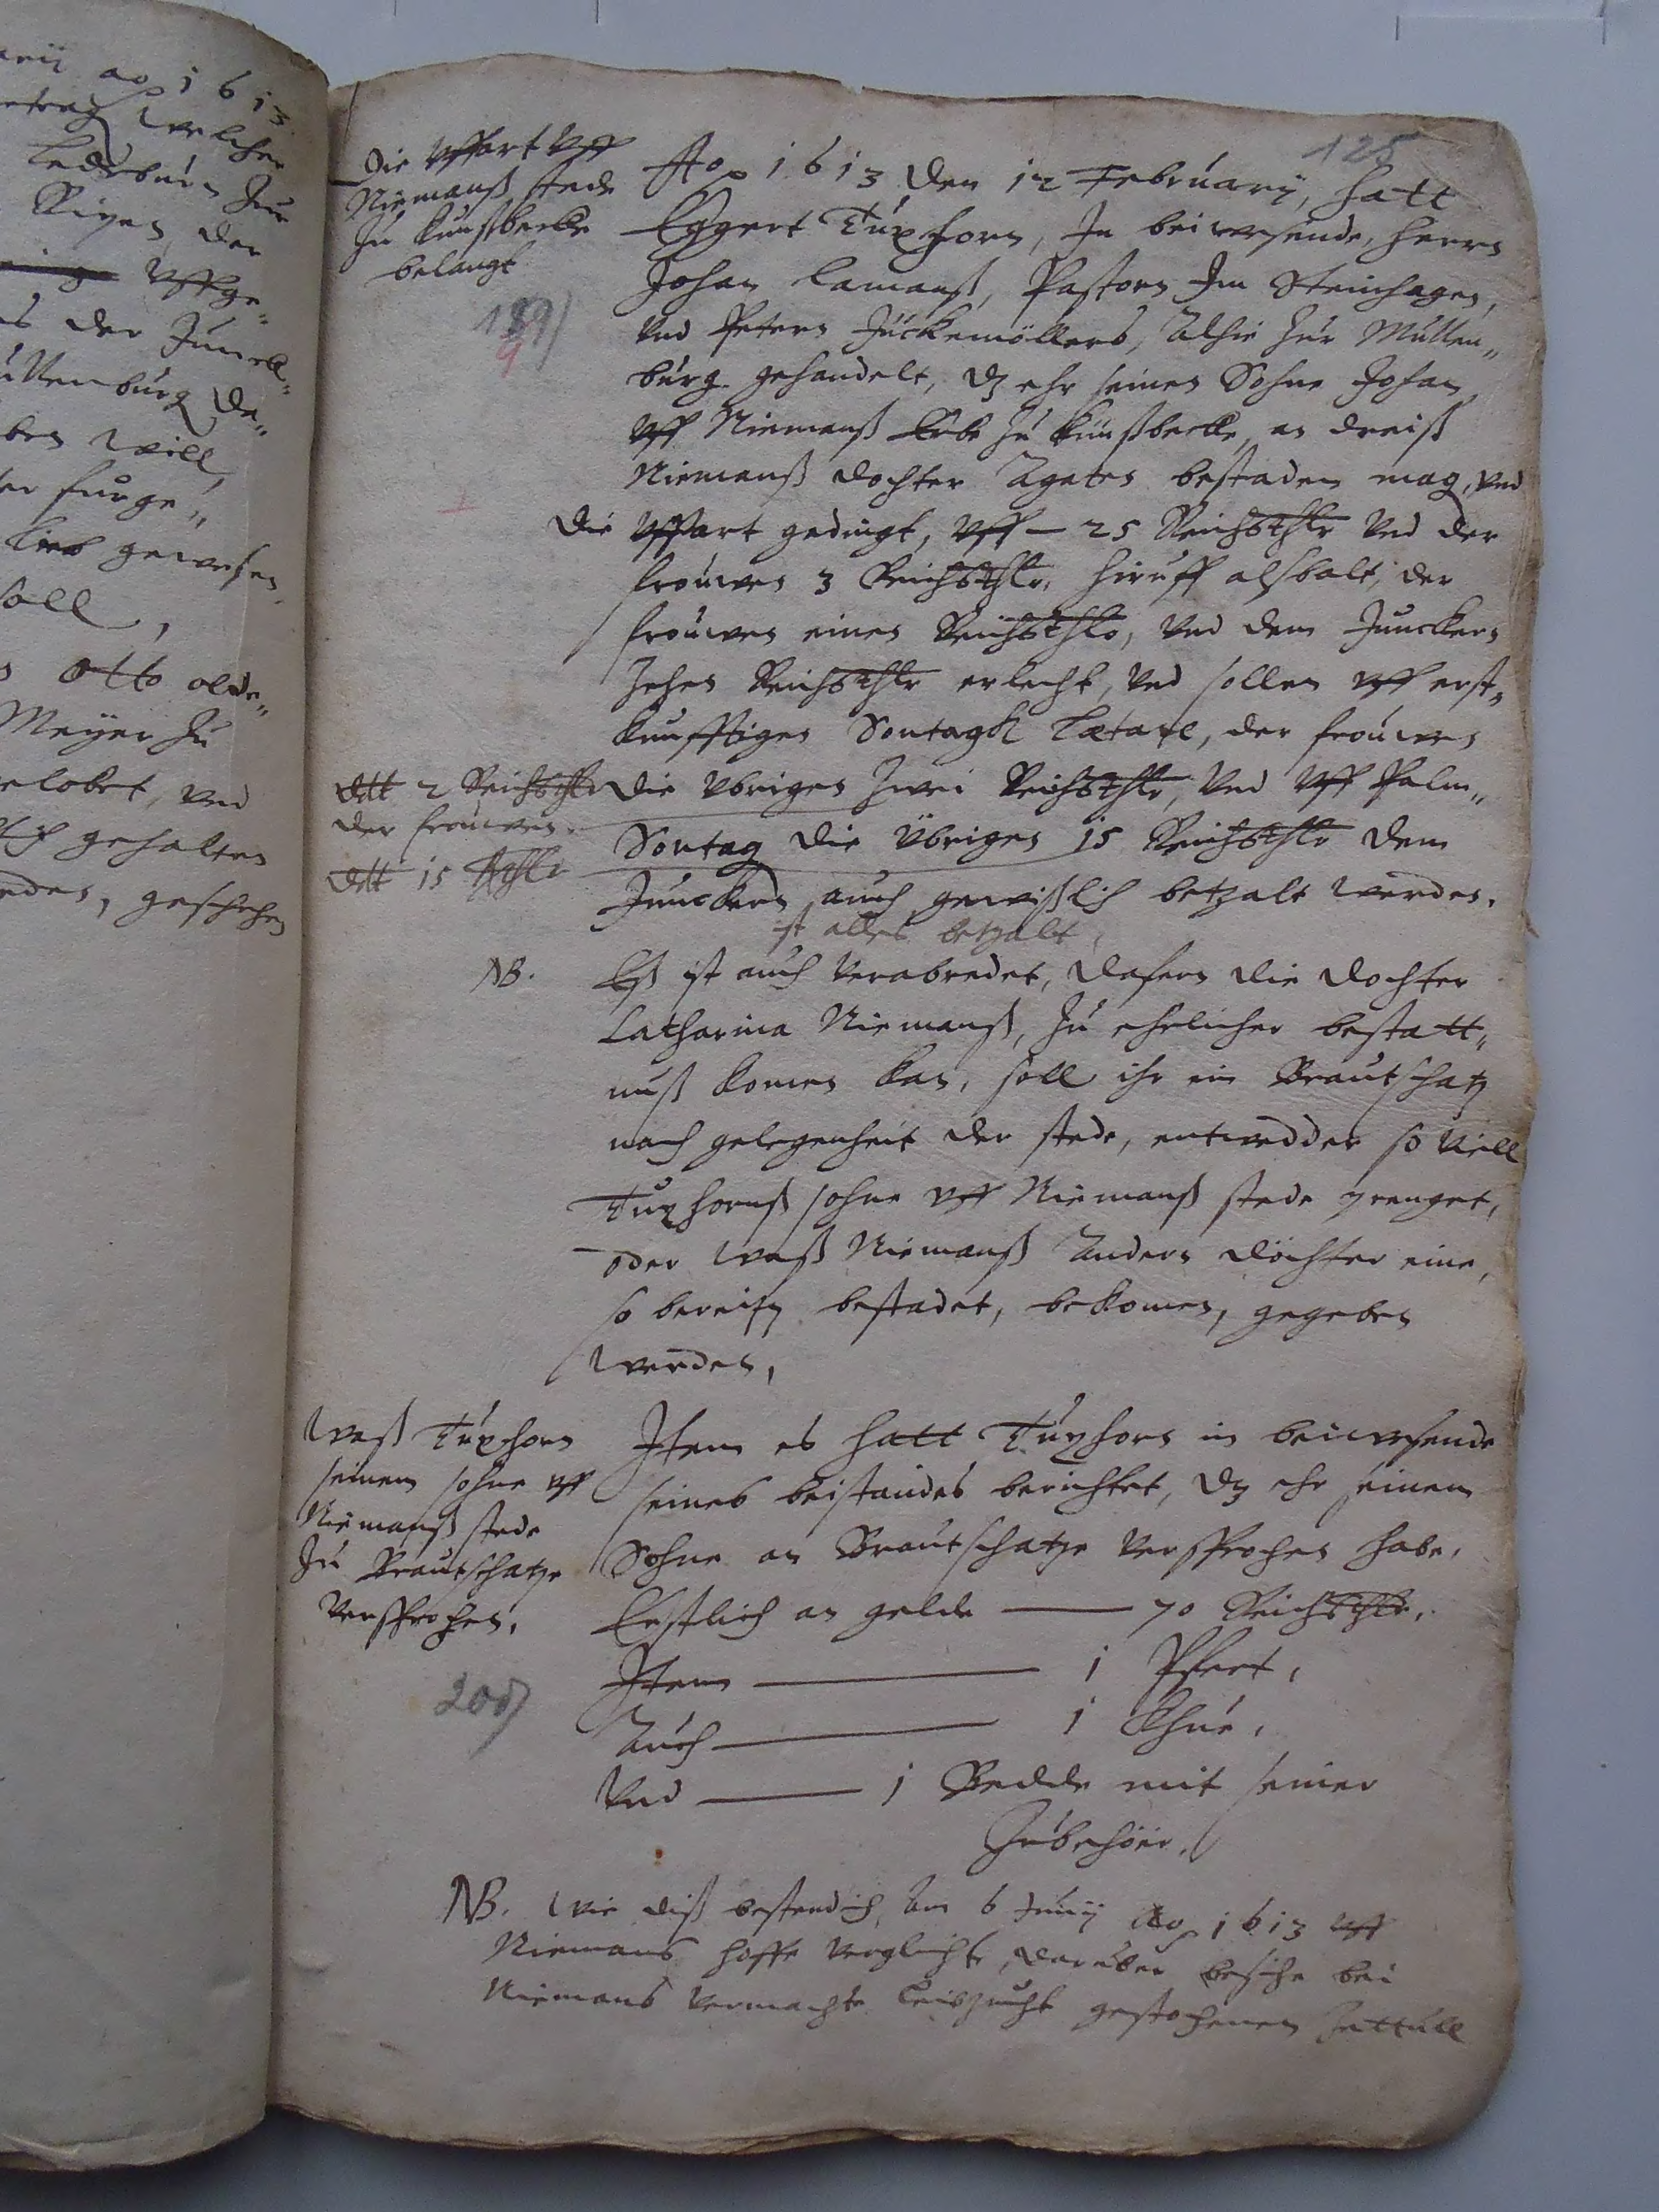 arij ao 1613
welcher
Ledeburn Zur
der
uffge-
der Junck-
ullenburg de-
ben will,
furge-
gewesen,
soll,
Otto olde-
Meyer zu
gelobet, und
gehalten
geschehen
125
Die uffart uff
Niemanß stede
zu Künßbecke
belangt
189)
9
Ao 1613 den 12 February, hatt
Eggert Tüxhorn, In beiwesende, herrn
Johan Lamanß, Pastorn Im Steinhagen,
und Petern Jückemöllers, Alhie zur Mullen-
burg gehandelt, dz ehr seinen Sohne Johan
uff Niemanß Erbe zu Künßbecke, an dreiß
Niemanß dochter Agaten bestaden mag, und
die uffart gedingt, uff — 25 Reichsthlr und der
frouwen 3 Reichsthlr, hiruff alsbalt, der
frouwen einen Reichsthlr, und dem Junckern
Zehen Reichsthlr erlecht, und sollen uff erst-
kunfftigen Sontagh Lætare, der frouwen
dtt 2 Reichsthlr
der frouwen
dtt 15 Rthlr
die übrigen zwei Reichsthlr, und uff Palm-
Sontag die übrigen 15 Reichsthlr dem
Junckern auch gewißlich betzalt werden.
ist alles betzalt,
NB. Eß ist auch verabredet, dafern die dochter
Catharina Niemanß, zu ehelicher bestatt-
nuß komen kan, soll ihr ein Brautschatz
nach gelegenheit der stede, entwedder so viell
Tüxhornß sohne uff Niemanß stede prenget,
oder waß Niemanß Andern döchter eine,
so bereitz bestadet, bekomen, gegeben
werden,
Waß Tüxhorn
seinem sohne uff
Niemanß stede
zu Brautschatze
versprochen,
200)
Item es hatt Tüxhorn in beiwesende
seines beistandes berichtet, dz ehr seinem
Sohne an Brautschatze versprochen habe,
Erstlich an gelde — 70 Reichsthlr,
Item — 1 Pfert,
Auch — 1 Khue,
Und — 1 Bedde mit seiner
Zubehöer,
NB. Wie diß bestendich, Am 6 Junij Ao 1613 uff
Niemans hoffe verglichen, darüber besihe bei
Niemans vermachte Leibzucht gestochenen Zettull